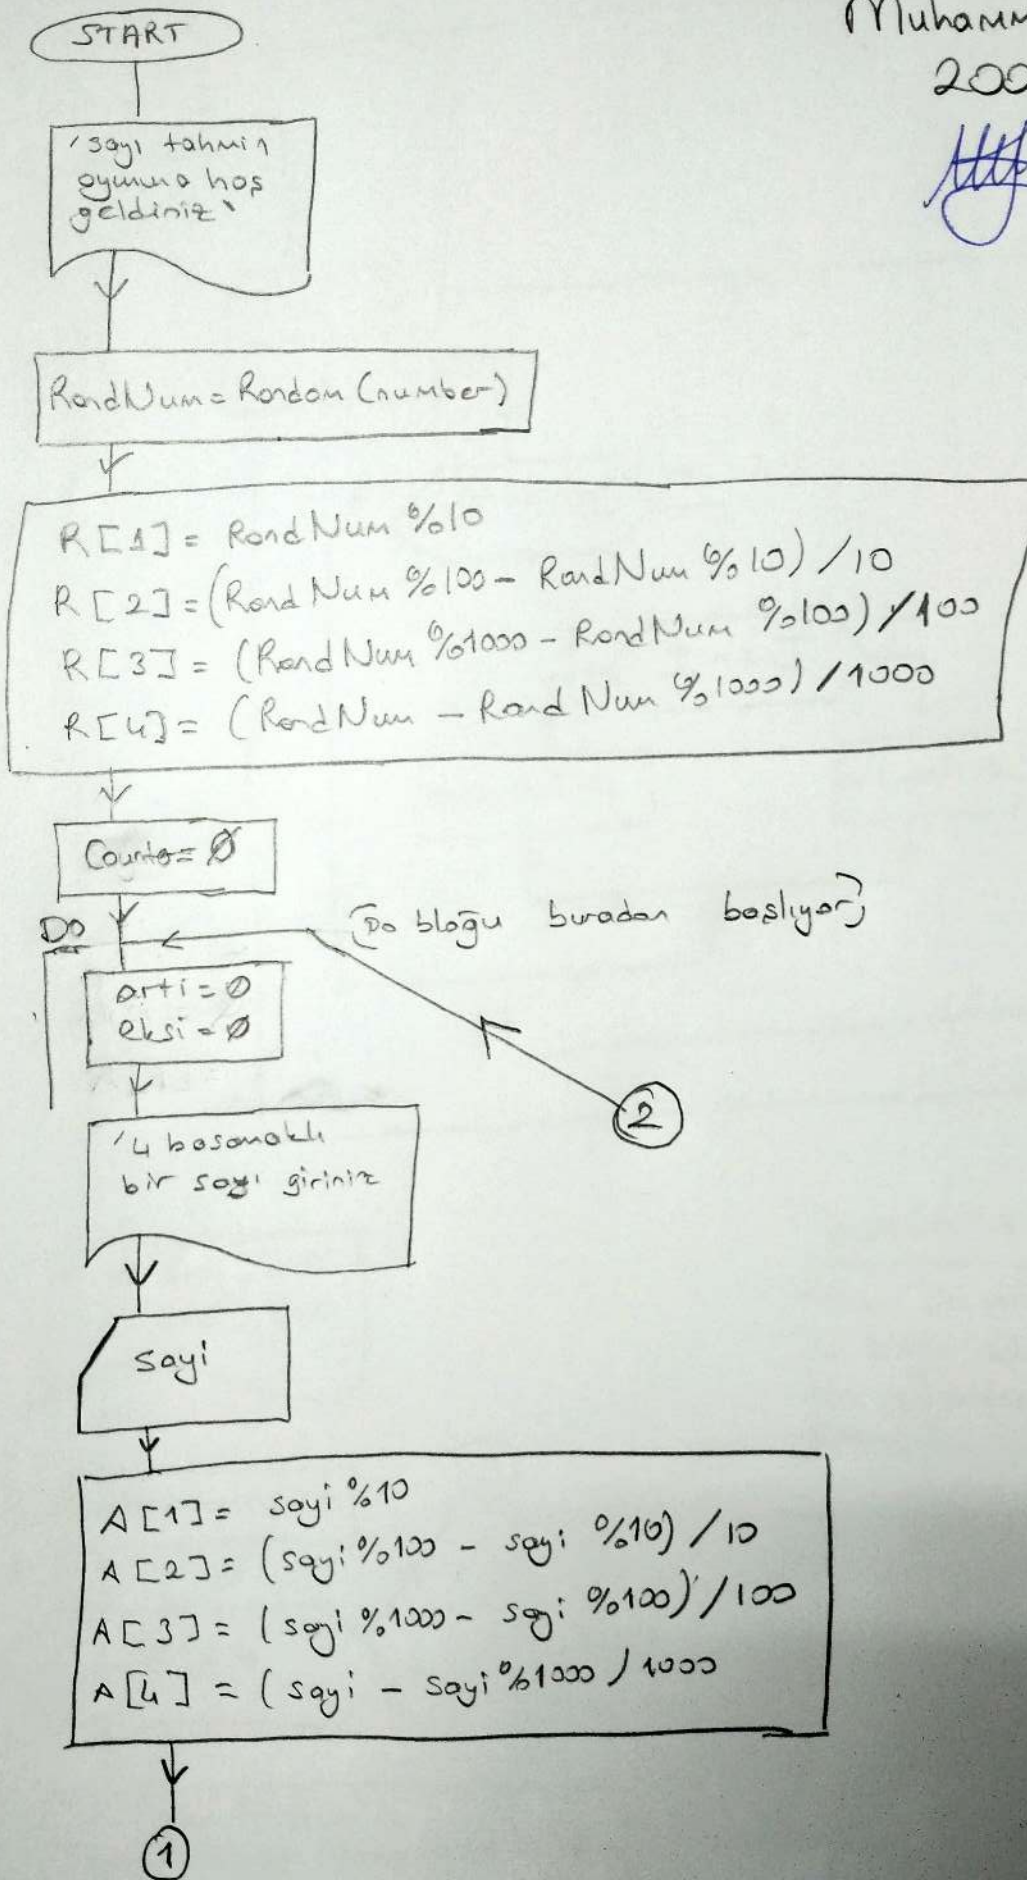 START
Muhamm
200
'sayı tahmin
oyununa hoş
geldiniz'
RandNum = Random (number)
R[1] = RandNum %10
R[2] = (RandNum %100 - RandNum %10) /10
R[3] = (RandNum %1000 - RandNum %100) /100
R[4] = (RandNum - RandNum %1000) /1000
Counter = 0
Do
(Do bloğu buradan başlıyor)
arti = 0
eksi = 0
2
'4 basamaklı
bir sayı giriniz
sayi
A[1] = sayi %10
A[2] = (sayi %100 - sayi %10) /10
A[3] = (sayi %1000 - sayi %100) /100
A[4] = (sayi - sayi %1000 / 1000
1